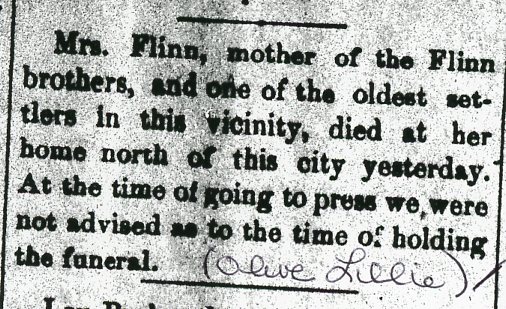 Mrs. Flinn, mother of the Flinn
brothers, and one of the oldest set-
tlers in this vicinity, died at her
home north of this city yesterday.
At the time of going to press we were
not advised as to the time of holding
the funeral. (Olive Lillie)